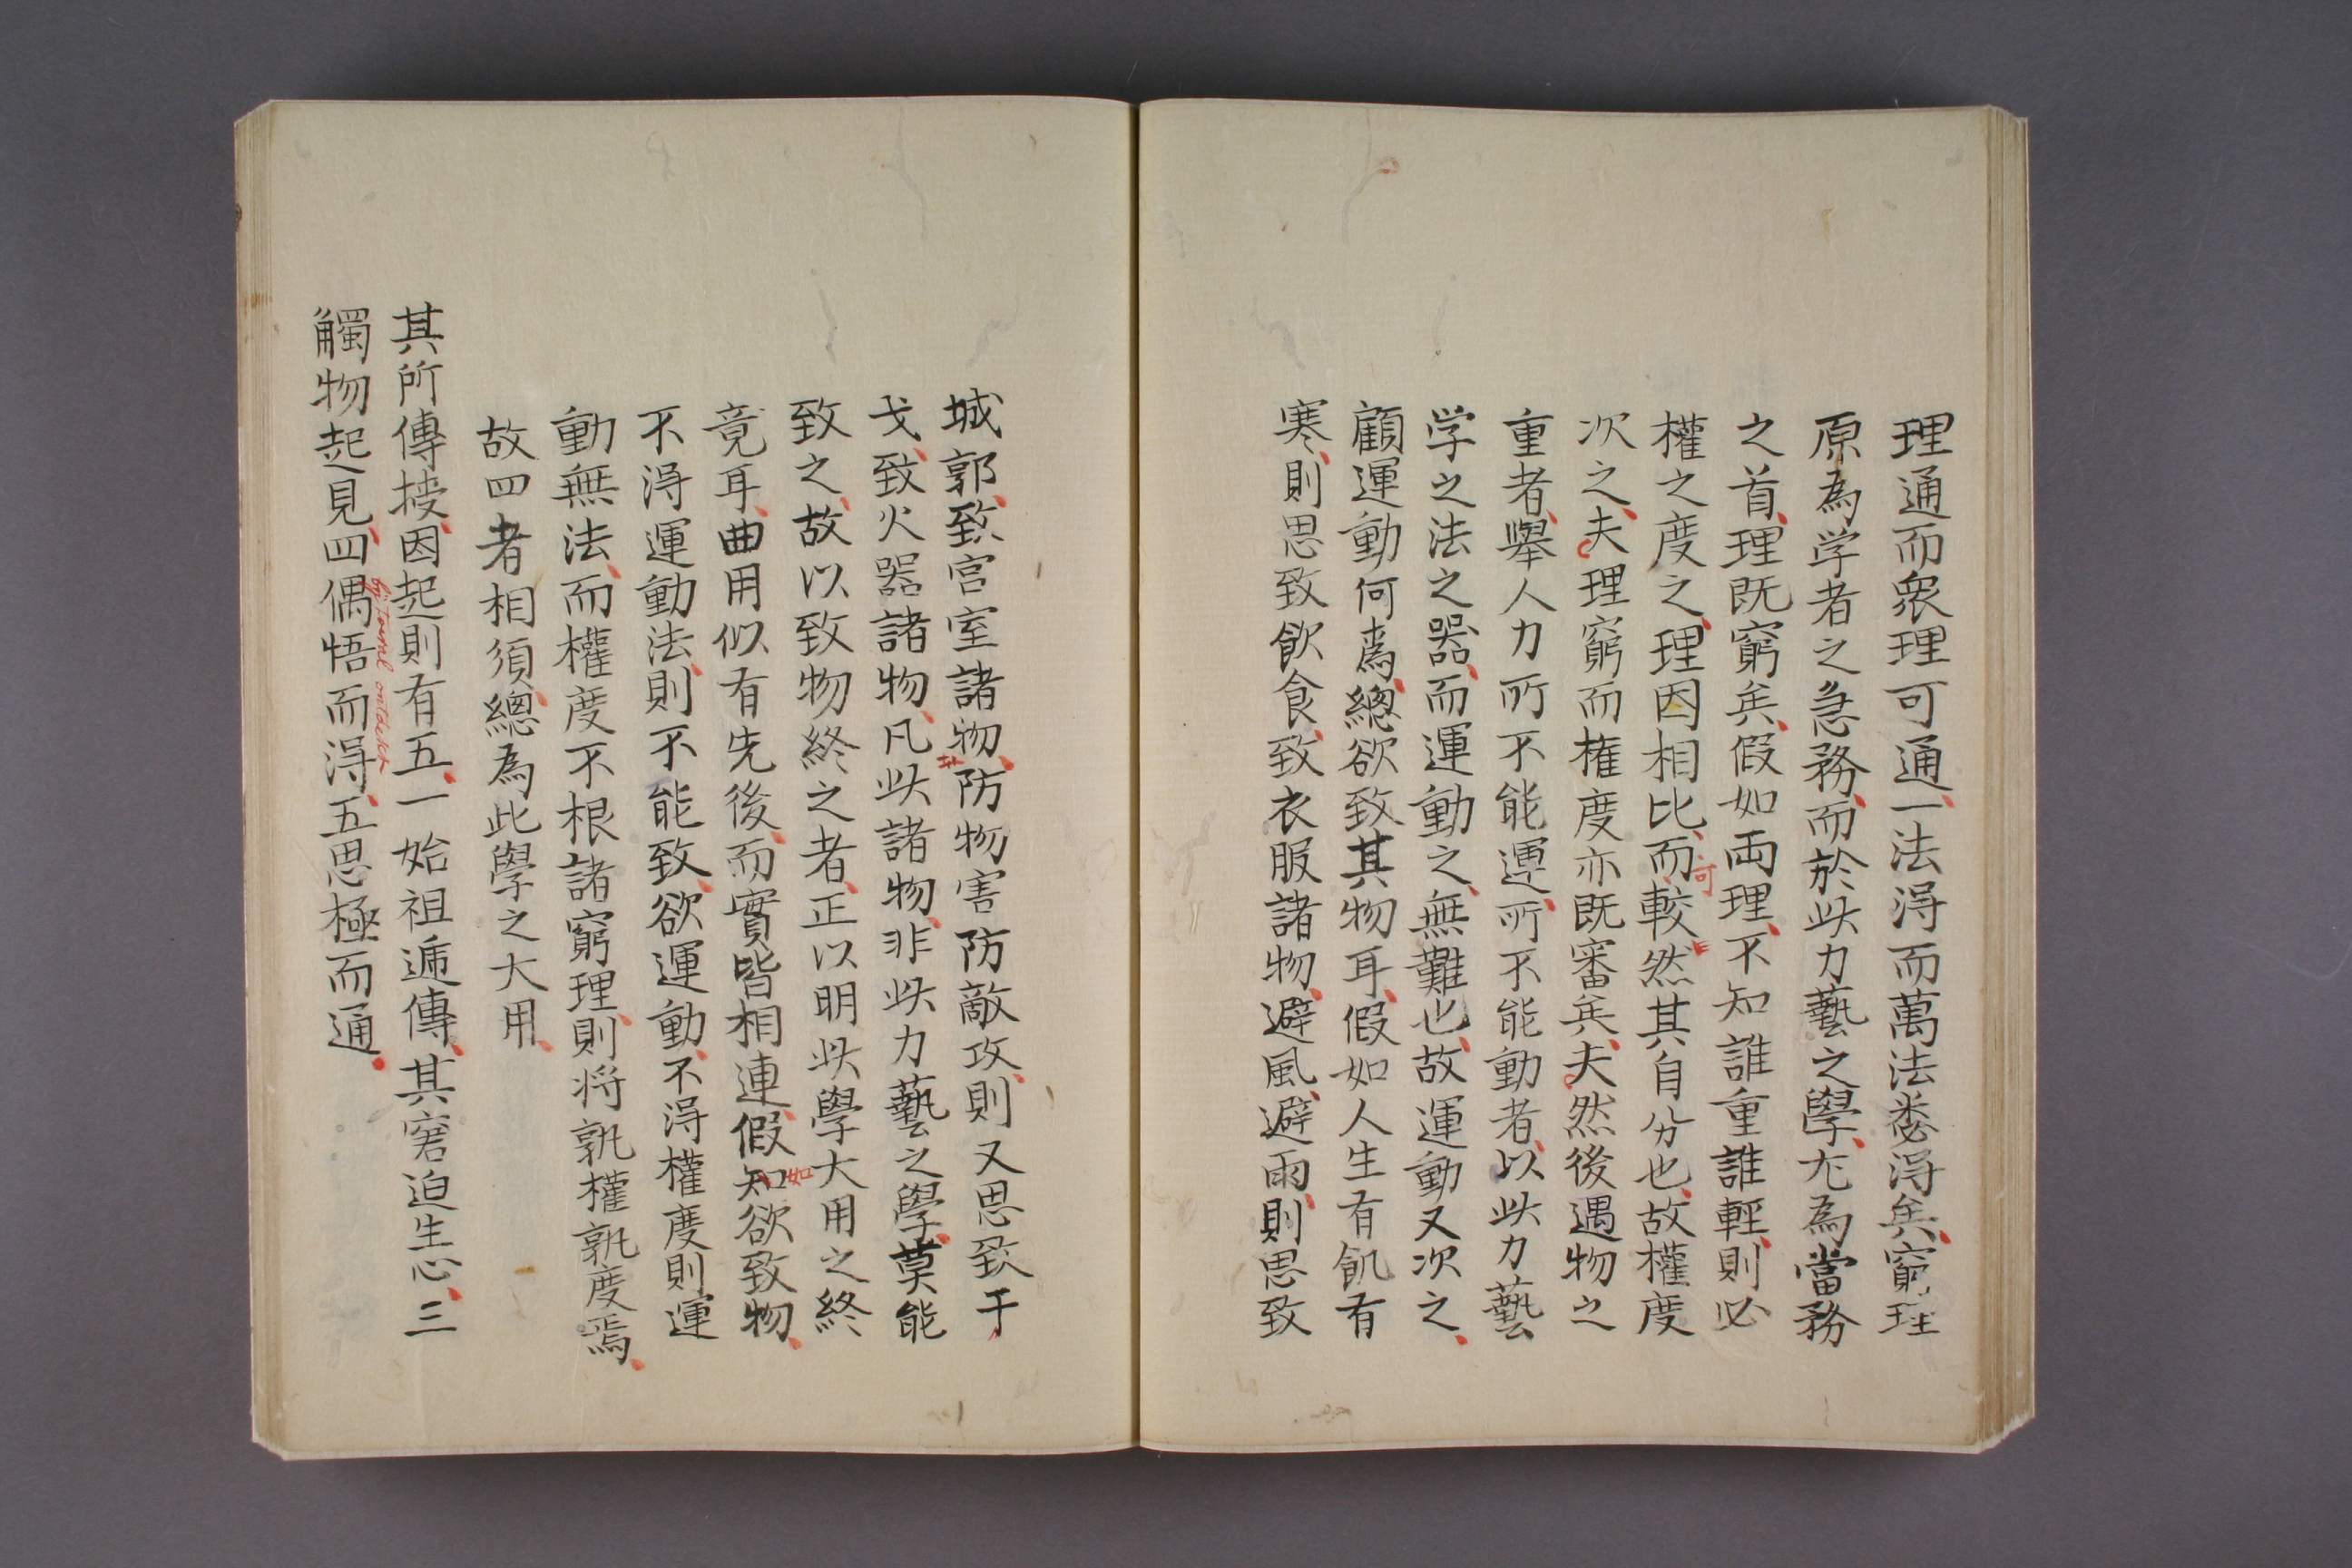 理通而衆理可通一法淂而萬法悉淂矣窮理
原為学者之急務而於此力藝之學尤為當務
之首理既窮矣假如両理不知誰重誰輕則必
權之度之理因相比而較然其自分也故權度
可
次之夫理窮而権度亦既審矣夫然後遇物之
重者舉人力所不能運所不能動者以此力藝
学之法之器而運動之無難也故運動又次之
顧運動何為總欲致其物耳假如人生有飢有
寒則思致飲食致衣服諸物避風避雨則思致
城郭致宮室諸物防物害防敵攻則又思致干
戈致火器諸物凡此諸物非此力藝之學莫能
致之故以致物終之者正以明此學大用之終
竟耳曲用似有先後而實皆相連假知欲致物
如
不淂運動法則不能致欲運動不淂權度則運
動無法而權度不根諸窮理則将孰權孰度焉
故四者相須總為此學之大用
其所傳授因起則有五一始祖逓傳其窘迫生心三
觸物起見四偶悟而淂五思極而通